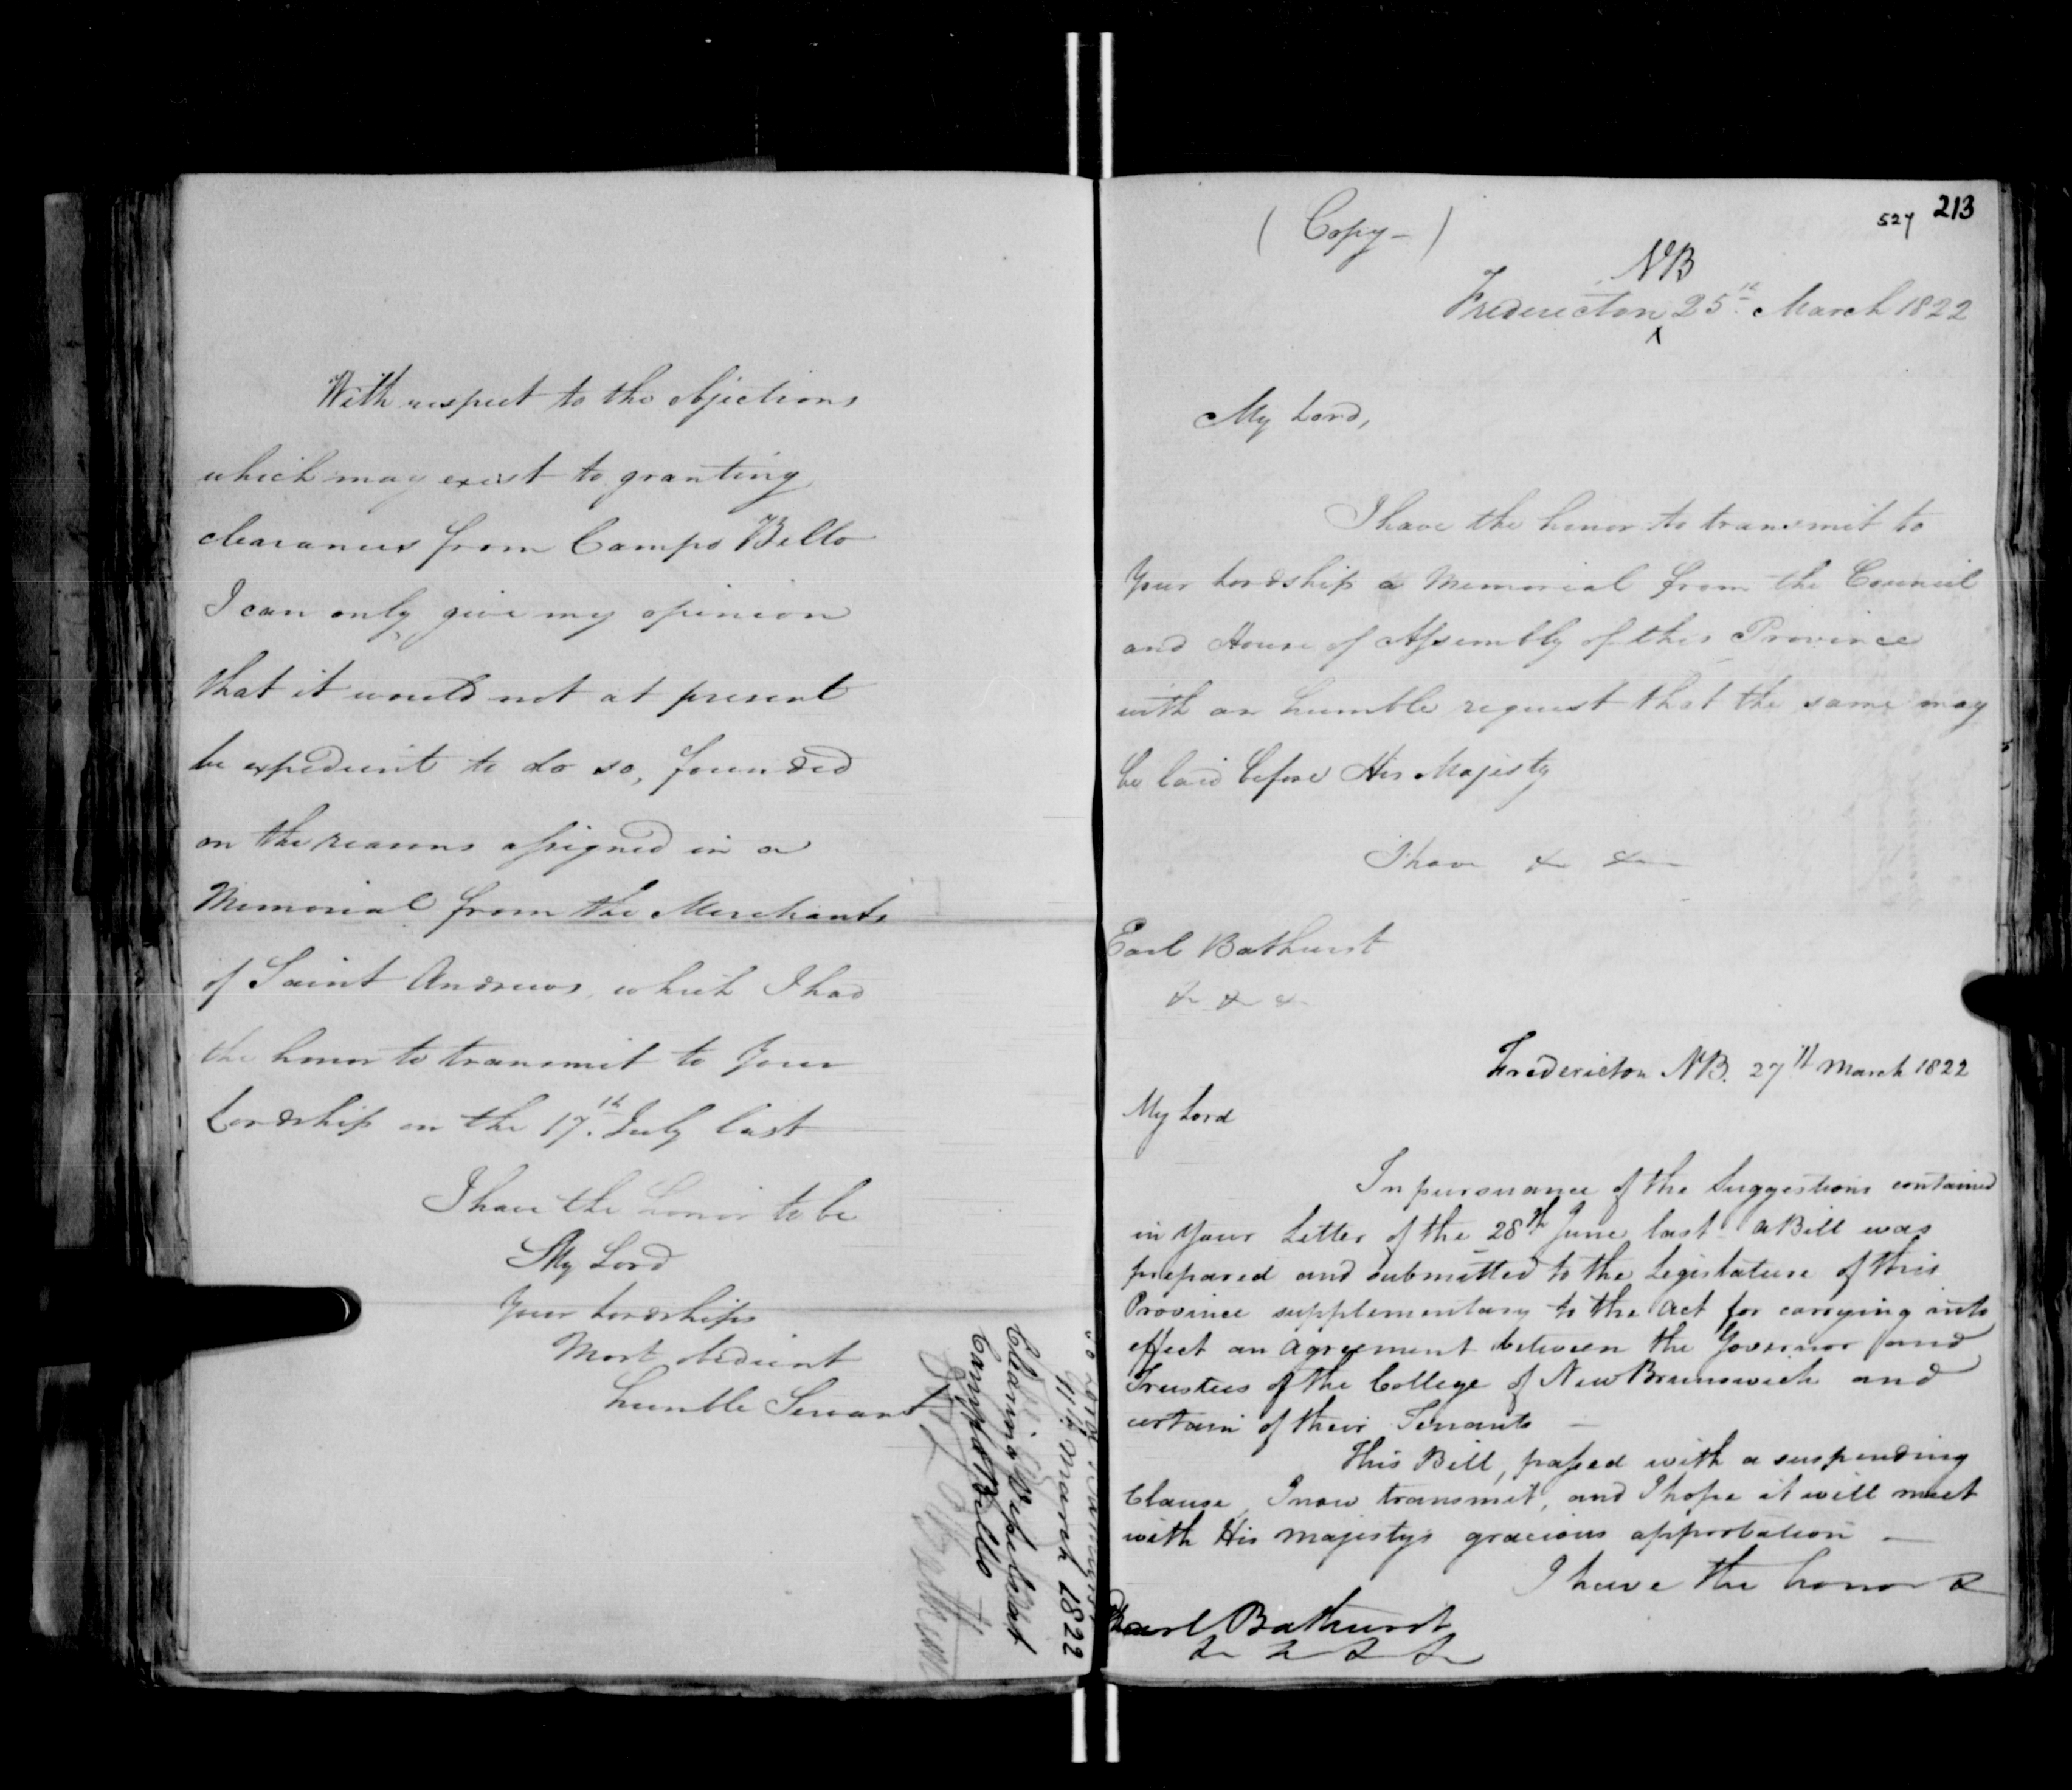 With respect to the objections
which may exist to granting
clearances from Campo Bello
I can only give my opinion
that it would not at present
be expedient to do so, founded
on the reasons assigned in a
Memorial from the Merchants
of Saint Andrews, which I had
the honor to transmit to Your
Lordship on the 17th July last
I have the honor to be
My Lord
Your Lordships
Most obedient
humble Servant
11th March 1822
Campo Bello
(Copy-)
527 213
NB
Fredericton 25th March 1822
My Lord,
I have the honor to transmit to
Your Lordship a Memorial from the Council
and House of Assembly of this Province
with an humble request that the same may
be laid before His Majesty
I have &c &c
Earl Bathurst
&c &c &c
Fredericton NB. 27th March 1822
My Lord
In pursuance of the Suggestions contained
in Your Letter of the 28th June last a Bill was
prepared and submitted to the Legislature of this
Province supplementary to the Act for carrying into
effect an Agreement between the Governor and
Trustees of the College of New Brunswick and
certain of their Tenants —
This Bill, passed with a suspending
Clause, I now transmit, and I hope it will meet
with His Majesty's gracious approbation —
I have the honor &
Earl Bathurst
&c &c &c &c